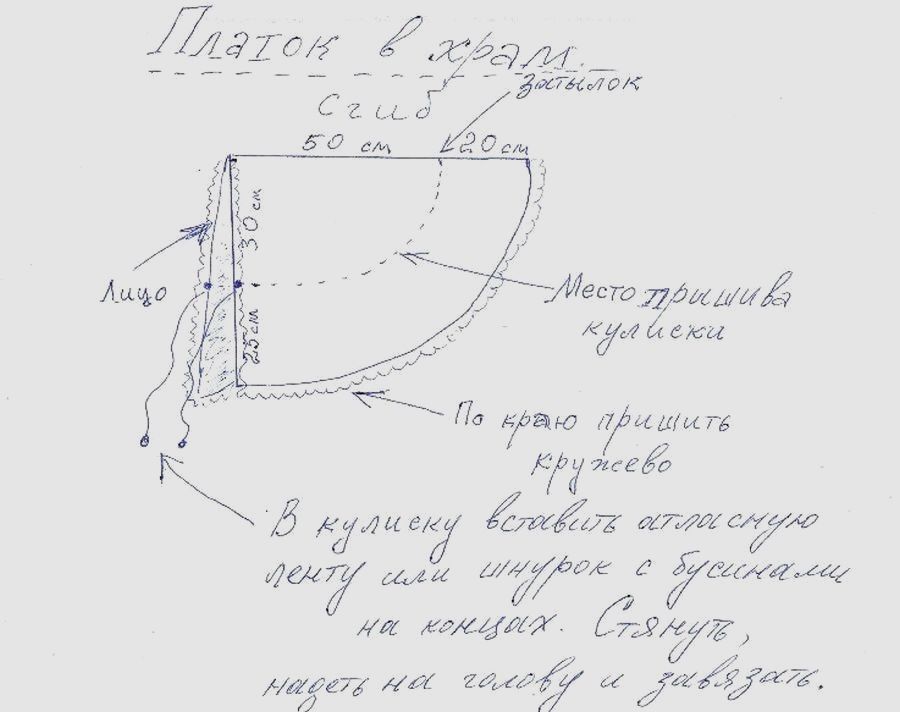 Платок в храм.
затылок
Сгиб
50 см 20 см
30 см
Лицо
Место пришива
кулиски
25 см
По краю пришить
кружево
В кулиску вставить атласную
ленту или шнурок с бусинами
на концах. Стянуть,
надеть на голову и завязать.